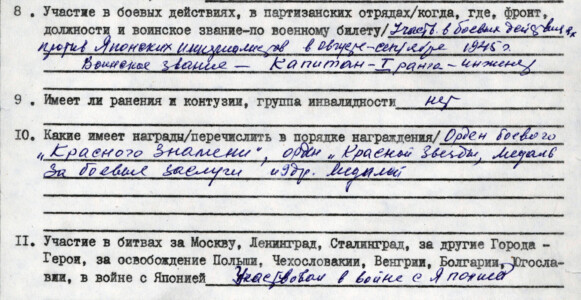 8. Участие в боевых действиях, в партизанских отрядах/когда, где, фронт,
должности и воинское звание-по военному билету/ Участ. в боевых действиях
против Японских империалистов в августе-сентябре 1945 г.
Воинское звание – Капитан-I ранга-инженер
9. Имеет ли ранения и контузии, группа инвалидности нет
IO. Какие имеет награды/перечислить в порядке награждения/ Орден боевого
„Красного Знамени", орден „Красной Звезды, медаль
За боевые заслуги и др. медалей
II. Участие в битвах за Москву, Ленинград, Сталинград, за другие Города -
Герои, за освобождение Польши, Чехословакии, Венгрии, Болгарии, Югосла-
вии, в войне с Японией Участвовал в войне с Японией